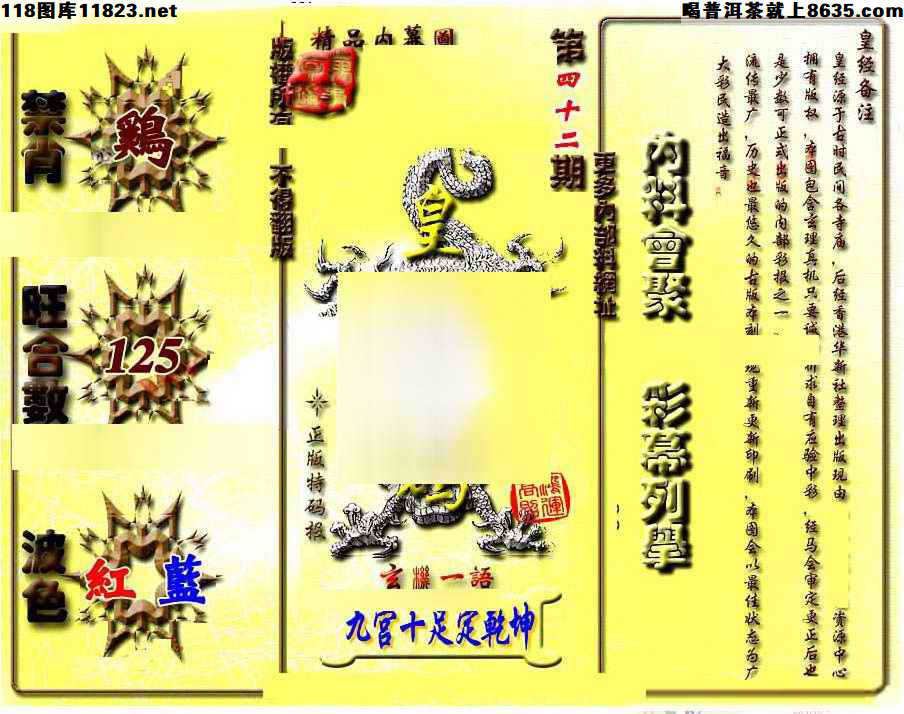 118图库11823.net
喝普洱茶就上8635.com
禁肖
鷄
旺合數
125
波色
紅 藍
版權所有
不得翻版
精品内幕圖
第四十二期
更多內部料網址
皇
正版特码报
鴻運
玄機一語
九宮十足定乾坤
内料會聚
彩幕列舉
皇经备注
皇经源于古时民间各寺庙，后经香港华新社整理出版现由 资源中心
拥有版权，本图包含玄理真机只要诚 祈求自有应验中彩，经马会审定更正后也
是少数可正式出版的内部彩报之一
流传最广，历史也最悠久的古版本刊 现重新更新印刷，本图会以最佳状态为广
大彩民造出福音